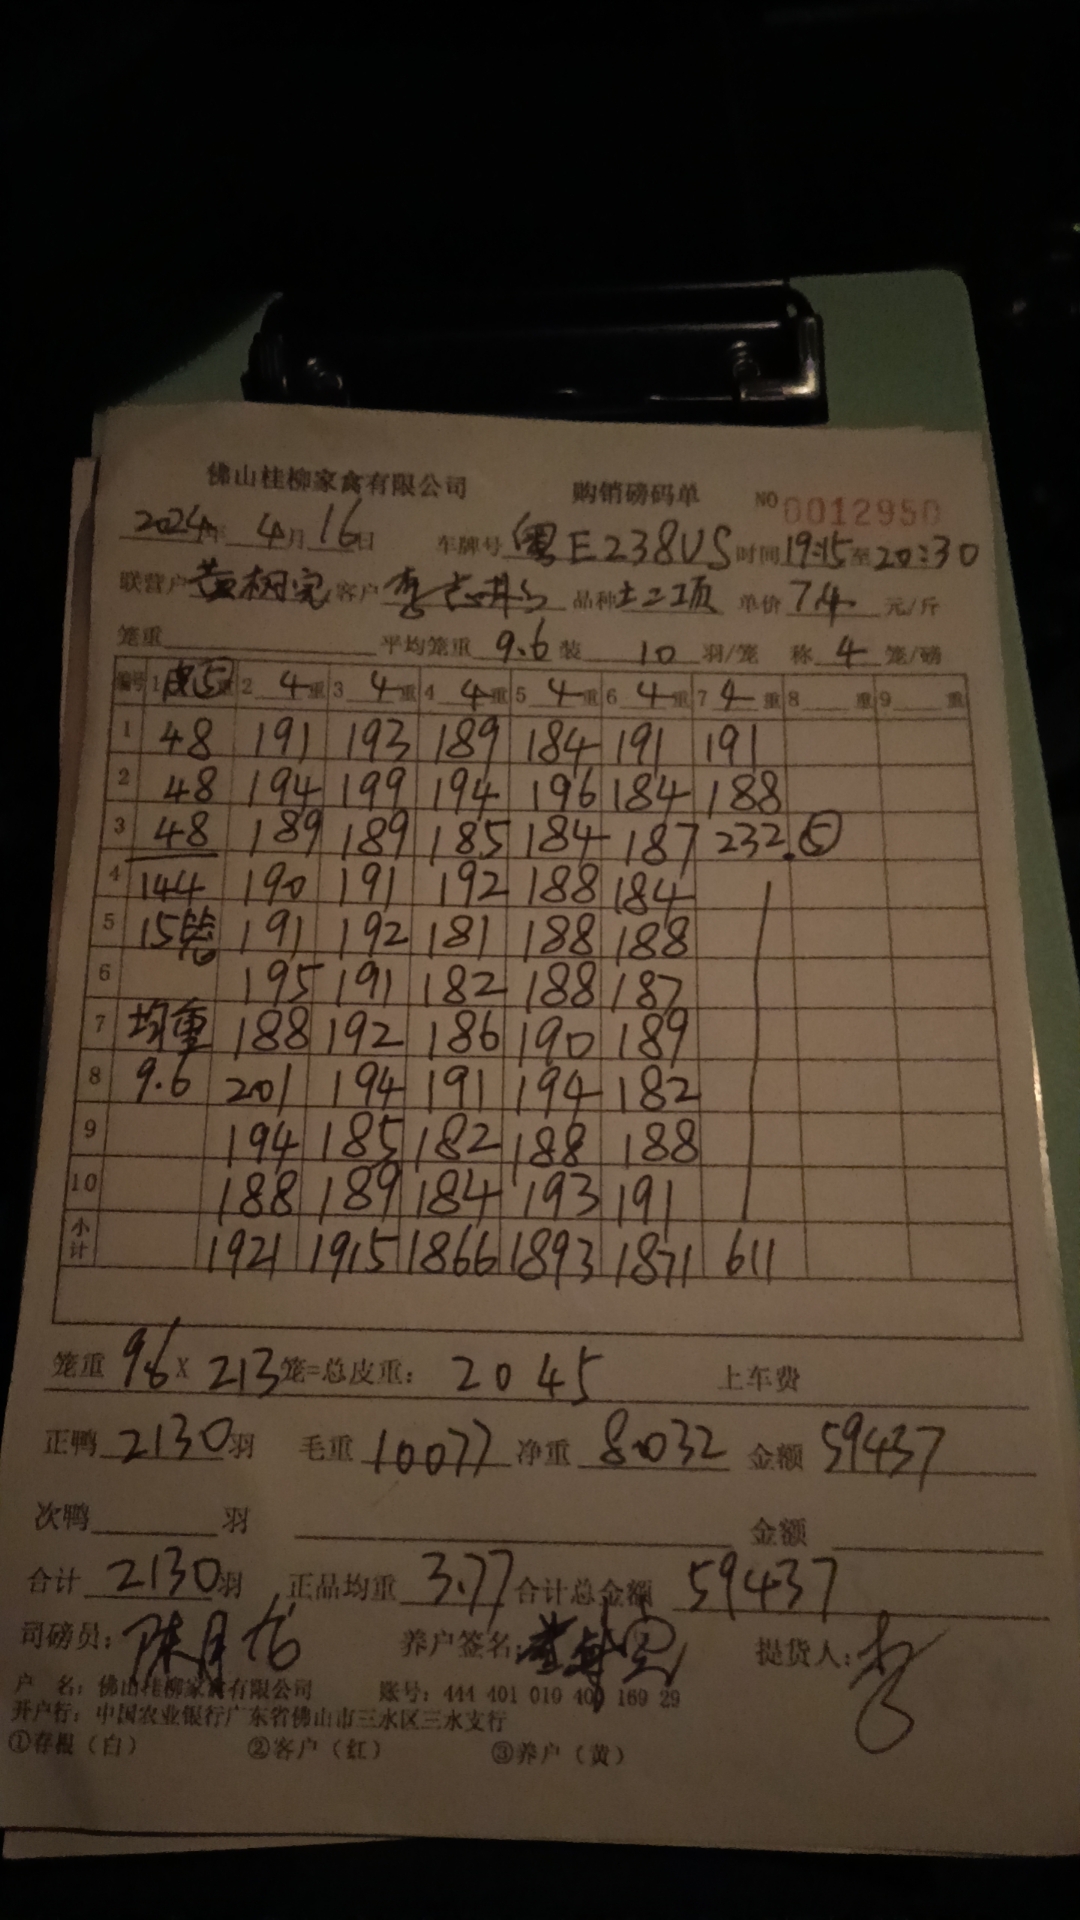 佛山桂柳家禽有限公司 购销磅码单 NO 0012950
2024年 4月 16日 车牌号 粤E238US 时间 19:15 至 20:30
联营户 客户 品种 土二项 单价 7.4 元/斤
笼重 平均笼重 9.6 装 10 羽/笼 称 4 笼/磅
编号 1 皮5重 2 4 重 3 4 重 4 4 重 5 4 重 6 4 重 7 4 重 8 重 9 重
1 48 191 193 189 184 191 191
2 48 194 199 194 196 184 188
3 48 189 189 185 184 187 232.⑤
4 144 190 191 192 188 184
5 15笼 191 192 181 188 188
6 195 191 182 188 187
7 均重 188 192 186 190 189
8 9.6 201 194 191 194 182
9 194 185 182 188 188
10 188 189 184 193 191
小计 1921 1915 1866 1893 1871 611
笼重 9.6 X 213 笼=总皮重: 2045 上车费
正鸭 2130 羽 毛重 10077 净重 8032 金额 59437
次鸭 羽 金额
合计 2130 羽 正品均重 3.77 合计总金额 59437
司磅员: 养户签名: 提货人:
户 名: 佛山桂柳家禽有限公司 账号: 444 401 010 400 169 29
开户行: 中国农业银行广东省佛山市三水区三水支行
①存根(白) ②客户(红) ③养户(黄)